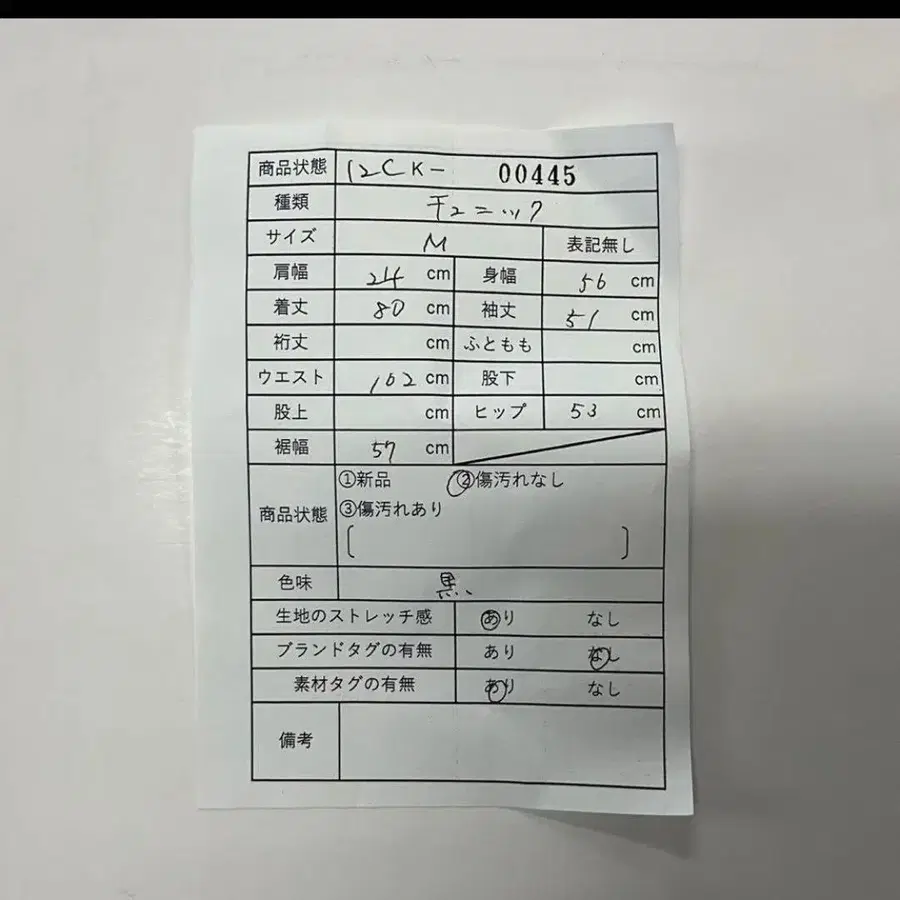 商品状態 12CK- 00445
種類 チュニック
サイズ M 表記無し
肩幅 24 cm 身幅 56 cm
着丈 80 cm 袖丈 51 cm
裄丈 cm ふともも cm
ウエスト 102 cm 股下 cm
股上 cm ヒップ 53 cm
裾幅 57 cm
①新品 ②傷汚れなし
商品状態 ③傷汚れあり
[ ]
色味 黒
生地のストレッチ感 あり なし
ブランドタグの有無 あり なし
素材タグの有無 あり なし
備考